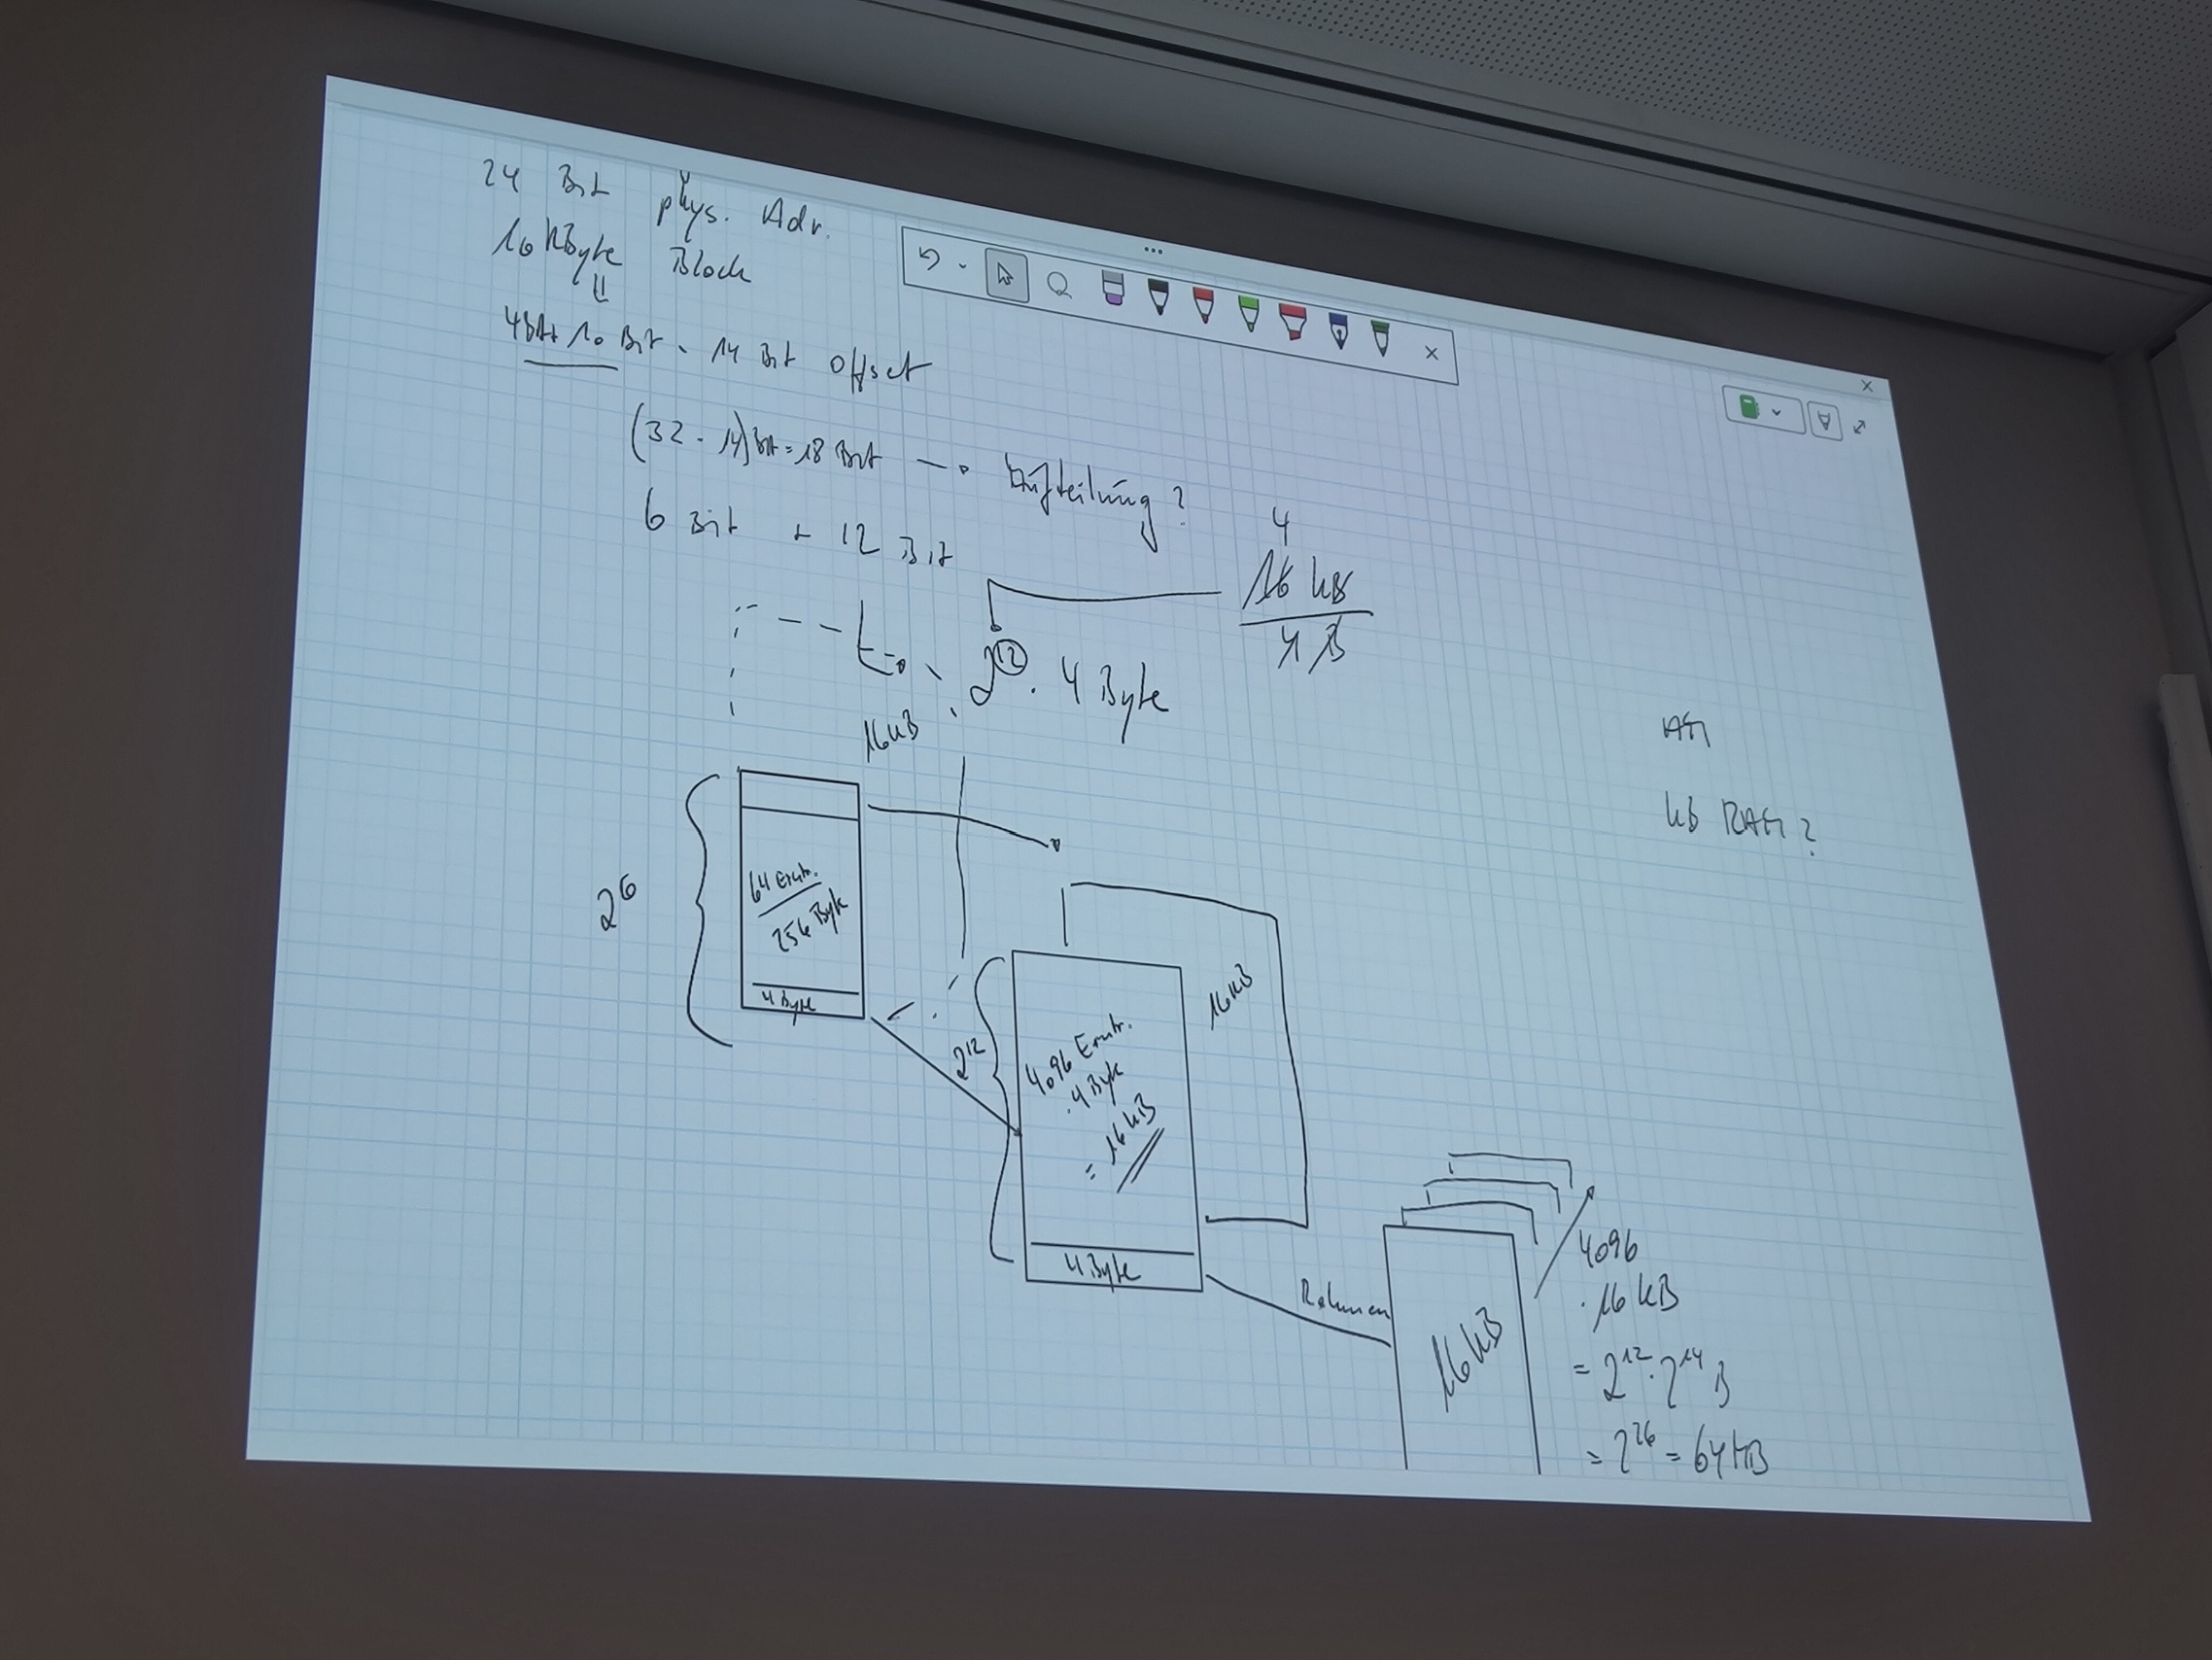 24 Bit phys. Adr.
16 kByte Block
4 Bit + 10 Bit = 14 Bit Offset
(32 - 14) Bit = 18 Bit → Aufteilung?
6 Bit + 12 Bit
4
16 kB
4 B
2^12 · 4 Byte
16 kB
kB RAM?
2^6
64 Eintr.
256 Byte
4 Byte
2^12
4096 Eintr.
· 4 Byte
= 16 kB
16 kB
4 Byte
Rahmen
16 kB
4096
· 16 kB
= 2^12 · 2^14 B
= 2^26 = 64 MB